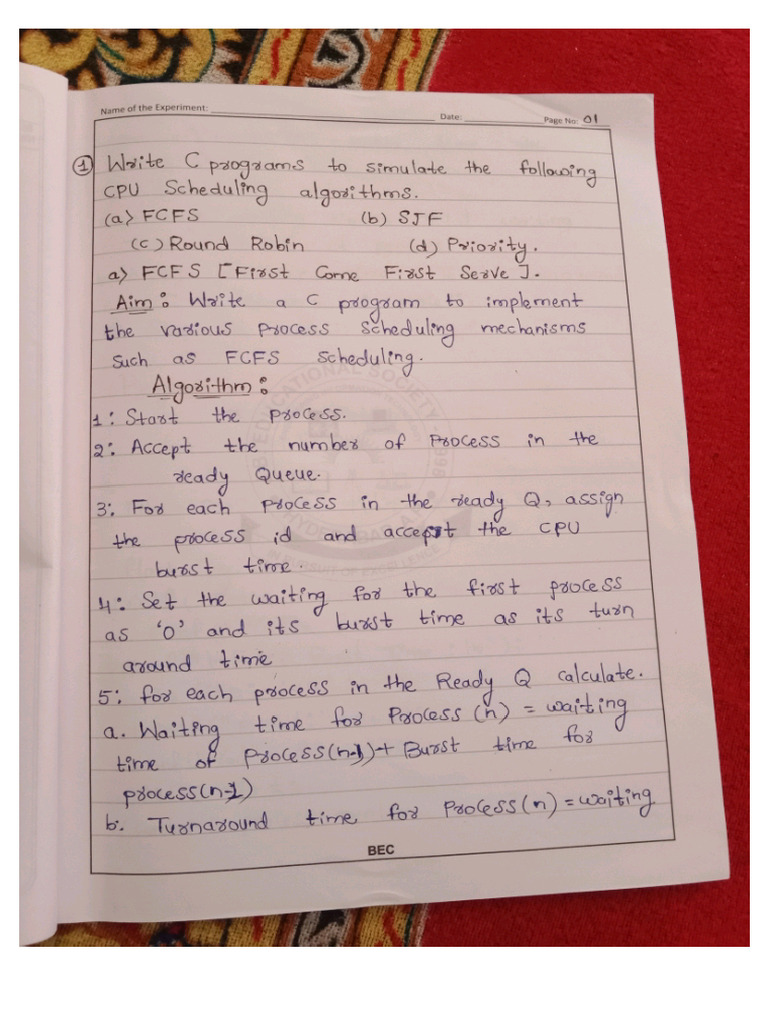 Name of the Experiment:
Date:
Page No: 01
① Write C programs to simulate the following
CPU Scheduling algorithms.
(a) FCFS (b) SJF
(c) Round Robin (d) Priority.
a) FCFS [First Come First Serve].
Aim: Write a C program to implement
the various process scheduling mechanisms
such as FCFS scheduling.
Algorithm:
1: Start the process.
2: Accept the number of process in the
ready Queue.
3: For each process in the ready Q, assign
the process id and accept the CPU
burst time.
4: Set the waiting for the first process
as '0' and its burst time as its turn
around time
5: for each process in the Ready Q calculate.
a. Waiting time for Process(n) = waiting
time of process(n-1)+ Burst time for
process(n-1)
b. Turnaround time for Process(n) = waiting
BEC